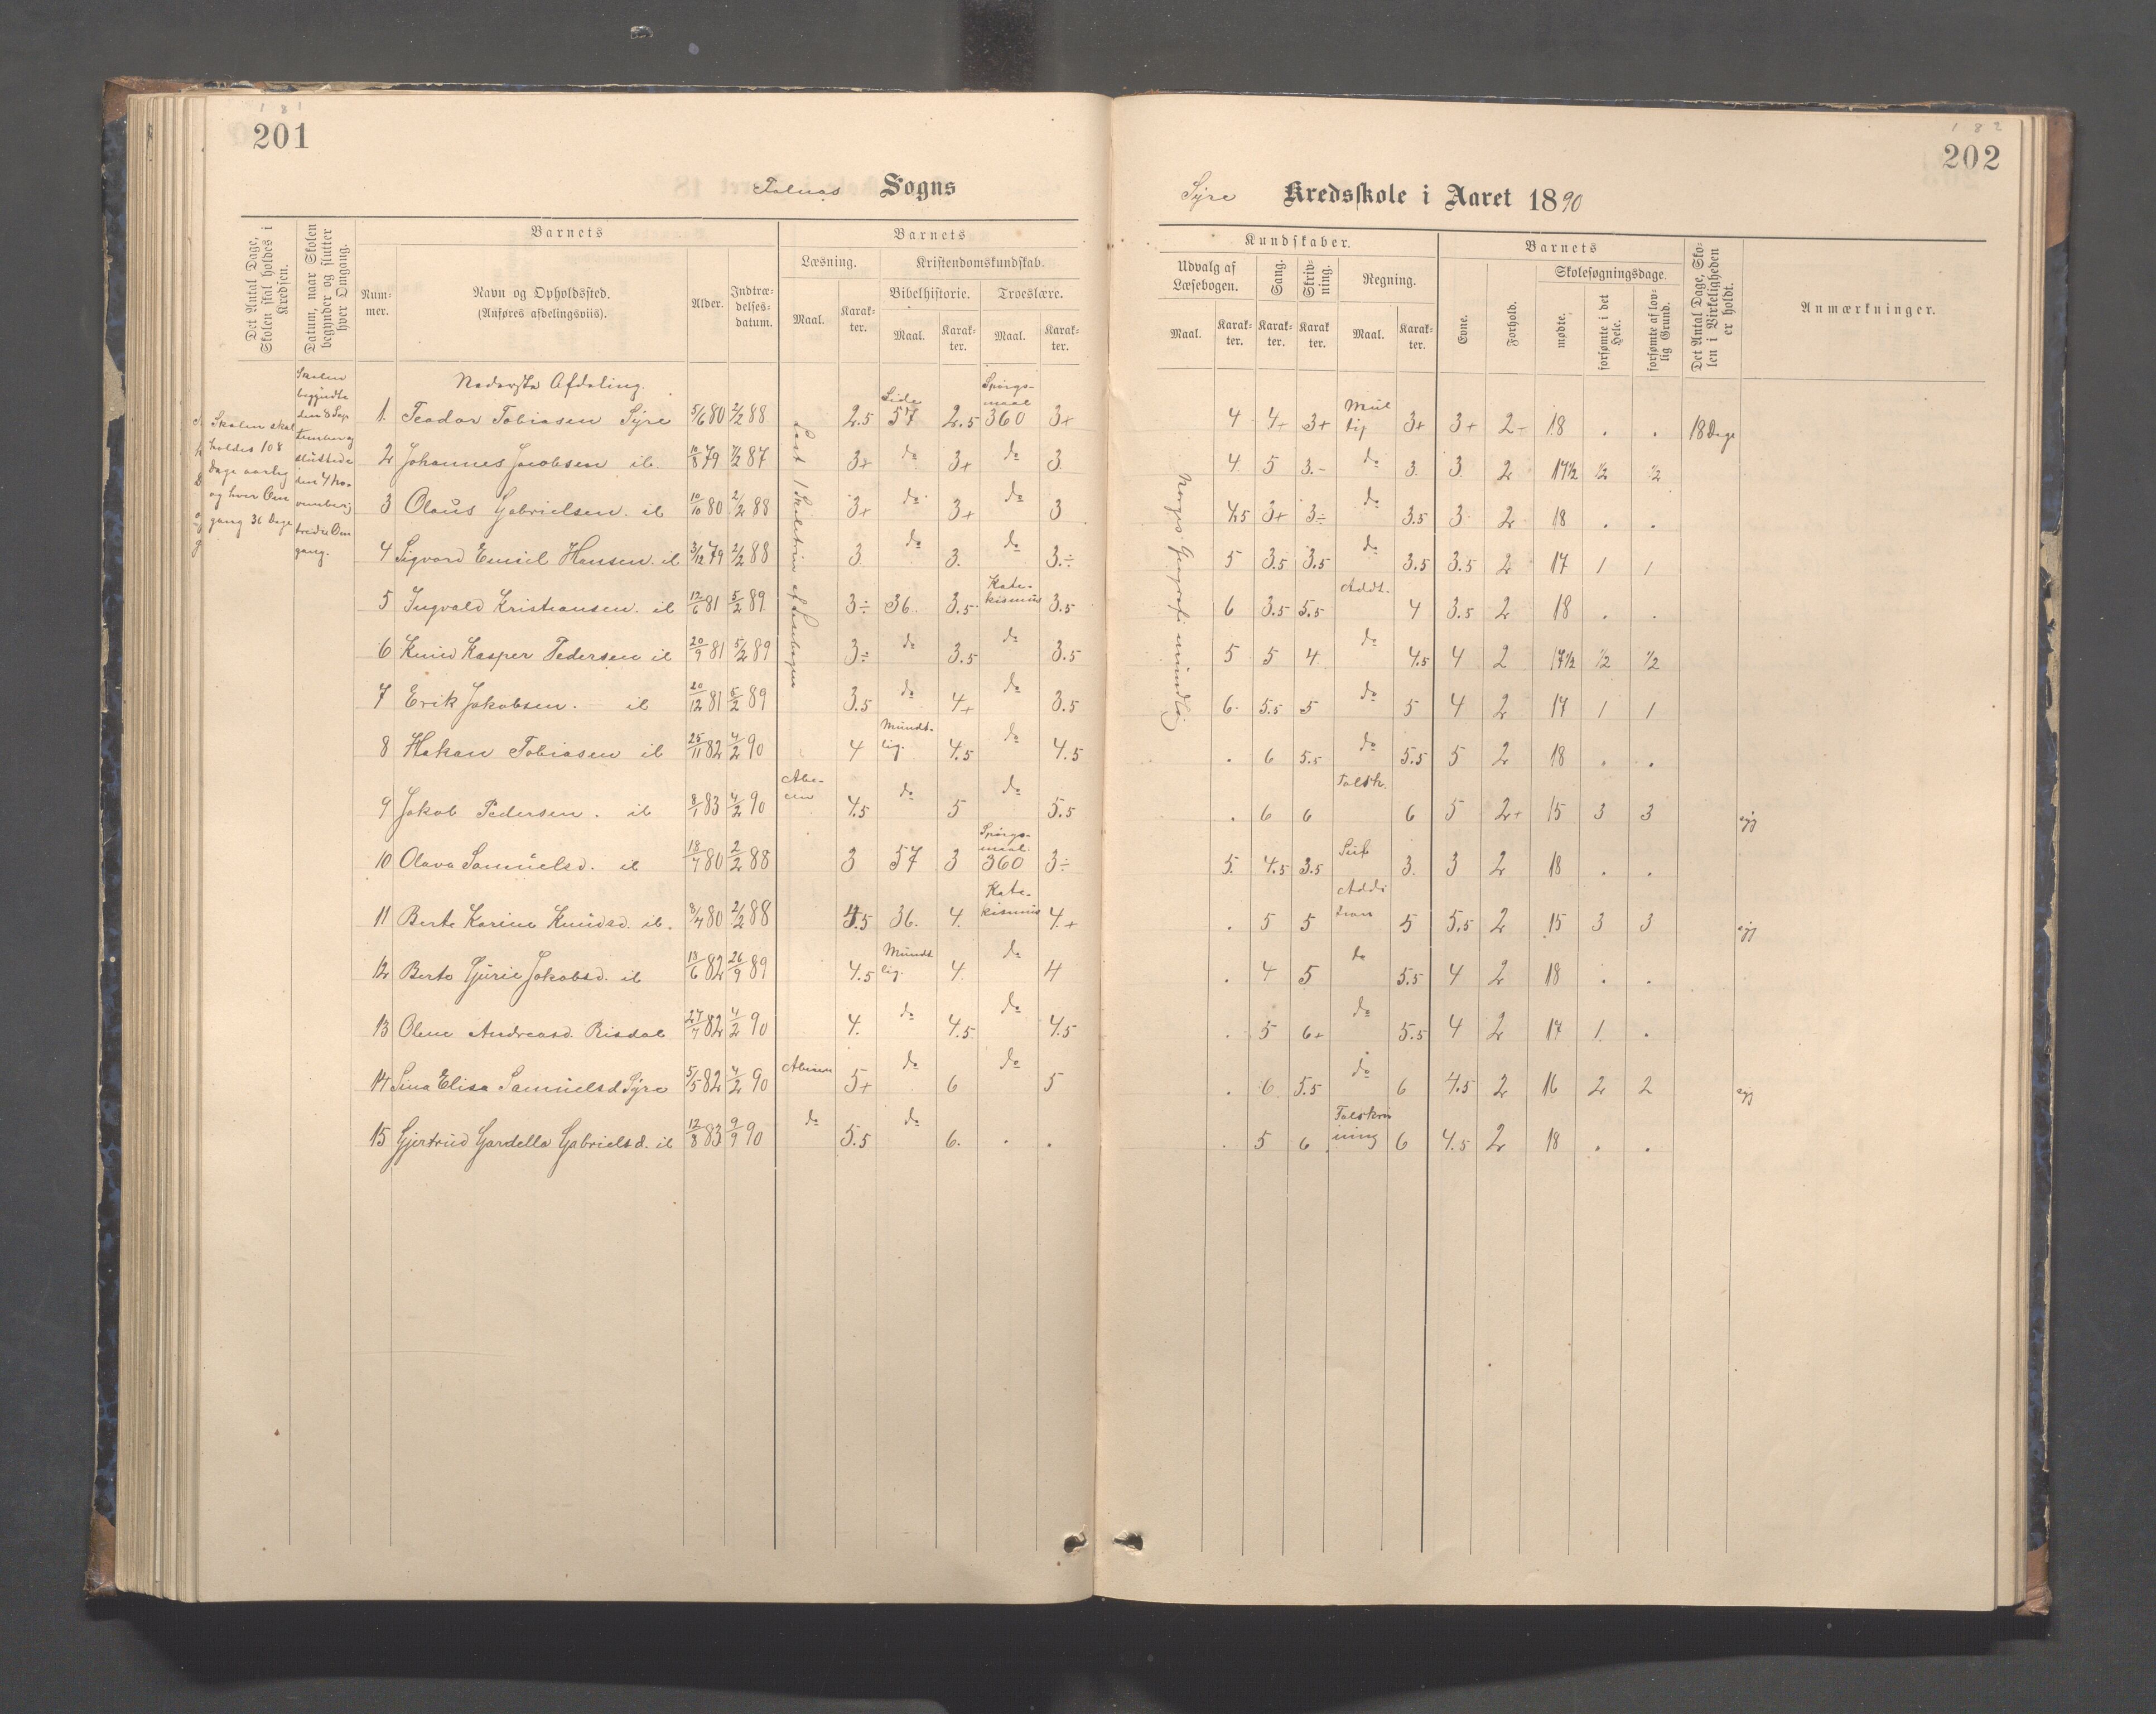 1 8 1
201
Falnes Sogns
Det Antal Dage, Skolen skal holdes i Kredsen.
Datum, naar Skolen begynder og slutter hver Omgang.
Barnets
Num-mer.
Navn og Opholdssted.
(Anføres afdelingsviis).
Alder.
Indtræ-delses-datum.
Barnets
Læsning.
Maal.
Karak-ter.
Kristendomskundskab.
Bibelhistorie.
Maal.
Karak-ter.
Troeslære.
Maal.
Karak-ter.
Skolen skal
holdes 108
Dage aarlig
og hver Om
gang 36 Dage
Skolen
begyndte
den 8 Sep
tember og
sluttede
den 4 No-
vember
tredie Om
gang.
Læst 1 Skoletrin af Læsebogen
Nederste Afdeling.
1. Teodor Tobiasen Syre 5/6 80 2/2 88 2.5 Side 57 2.5 Spørgs-maal 360 3+
2 Johannes Jacobsen ib. 10/8 79 7/2 87 3+ do 3+ do 3
3 Olaus Gabrielsen. ib 10/10 80 2/2 88 3+ do 3+ do 3
4 Sigvard Emil Hansen. ib 3/12 79 2/2 88 3 do 3. do 3.÷
5 Ingvald Kristiansen. ib 12/6 81 5/2 89 3÷ 36. 3.5 Kate-kismus 3.5
6 Knud Kasper Pedersen ib 20/9 81 5/2 89 3÷ do 3.5 do 3.5
7 Erik Jakobsen. ib 20/12 81 5/2 89 3.5 do 4+ do 3.5
8 Hakan Tobiasen ib 25/11 82 4/2 90 4 Mundt-lig. 4.5 do 4.5
9 Jakob Pedersen. ib 8/1 83 4/2 90 Abe-cen 4.5 do 5 do 5.5
10 Olava Samuelsd. ib 18/7 80 2/2 88 3 57 3 Spørgs-maal 360 3÷
11 Berte Karine Knudsd. ib. 3/4 80 2/2 88 4.5 36. 4. Kate-kismus 4.+
12 Berte Gurie Jakobsd. ib 18/6 82 26/9 89 4.5 Mundt lig. 4. do 4
13 Olene Andreasd. Risdal 27/7 82 4/2 90 4. do 4.5 do 4.5
14 Sina Elisa Samuelsd Syre 5/5 82 4/2 90 Abeceen 5+ do 6 do 5
15 Gjertrud Gardella Gabrielsd. ib 12/8 83 9/9 90 do 5.5 do 6. . .
1 8 2
202
Syre Kredsskole i Aaret 1890
Kundskaber.
Udvalg af Læsebogen.
Maal.
Karak-ter.
Sang.
Karak-ter.
Skriv-ning.
Karak ter.
Regning.
Maal.
Karak-ter.
Barnets
Evne.
Forhold.
Skolesøgningsdage.
mødte.
forsømte i det Hele.
forsømte af lov-lig Grund.
Det Antal Dage, Sko-len i Virkeligheden er holdt.
Anmærkninger.
Norges Geografi mundtlig
4 4+ 3+ Mul tip 3+ 3+ 2- 18 . . 18 Dage
4. 5 3.- do 3. 3. 2 17½ ½ ½
4.5 3+ 3÷ do 3.5 3 2 18 . .
5 3.5 3.5 do 3.5 3.5 2 17 1 1
6 3.5 5.5 Addt. 4 3.5 2 18 . .
5 5 4. do 4.5 4 2 17½ ½ ½
6. 5.5 5 do 5 4 2 17 1 1
. 6 5.5 do 5.5 5 2 18 . .
. 6 6 Talsk. 6 5 2+ 15 3 3 syg
5. 4.5 3.5 Sub 3. 3 2 18 . .
. 5 5 Addi tion 5 5.5 2 15 3 3 syg
. 4 5 do 5.5 4 2 18 . .
. 5 6+ do 5.5 4 2 17 1. .
. 6 5.5 do 6 4.5 2 16 2 2 syg
. 5 6 Talskriv ning 6 4.5 2 18 . .